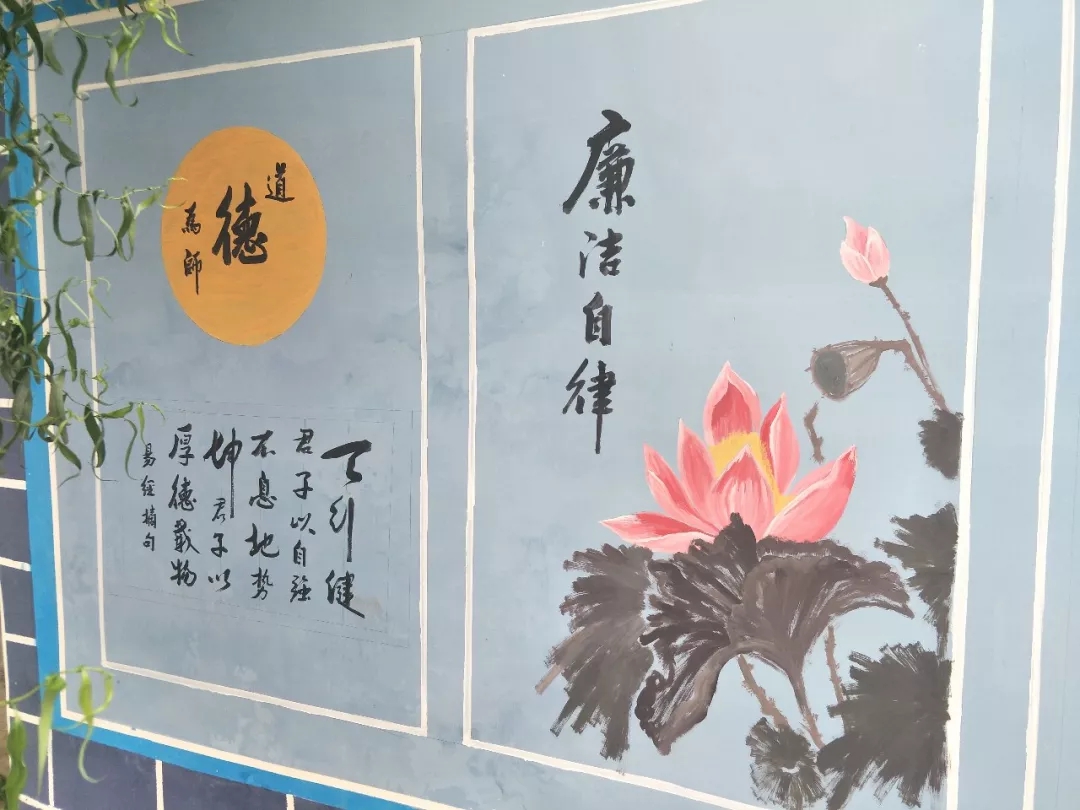 道
德
為師
天行健
君子以自強
不息地势
坤君子以
厚德載物
易經摘句
廉洁自律